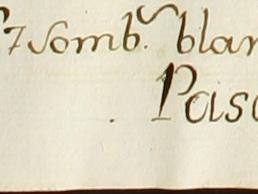 7 Somb. blan
Pasc